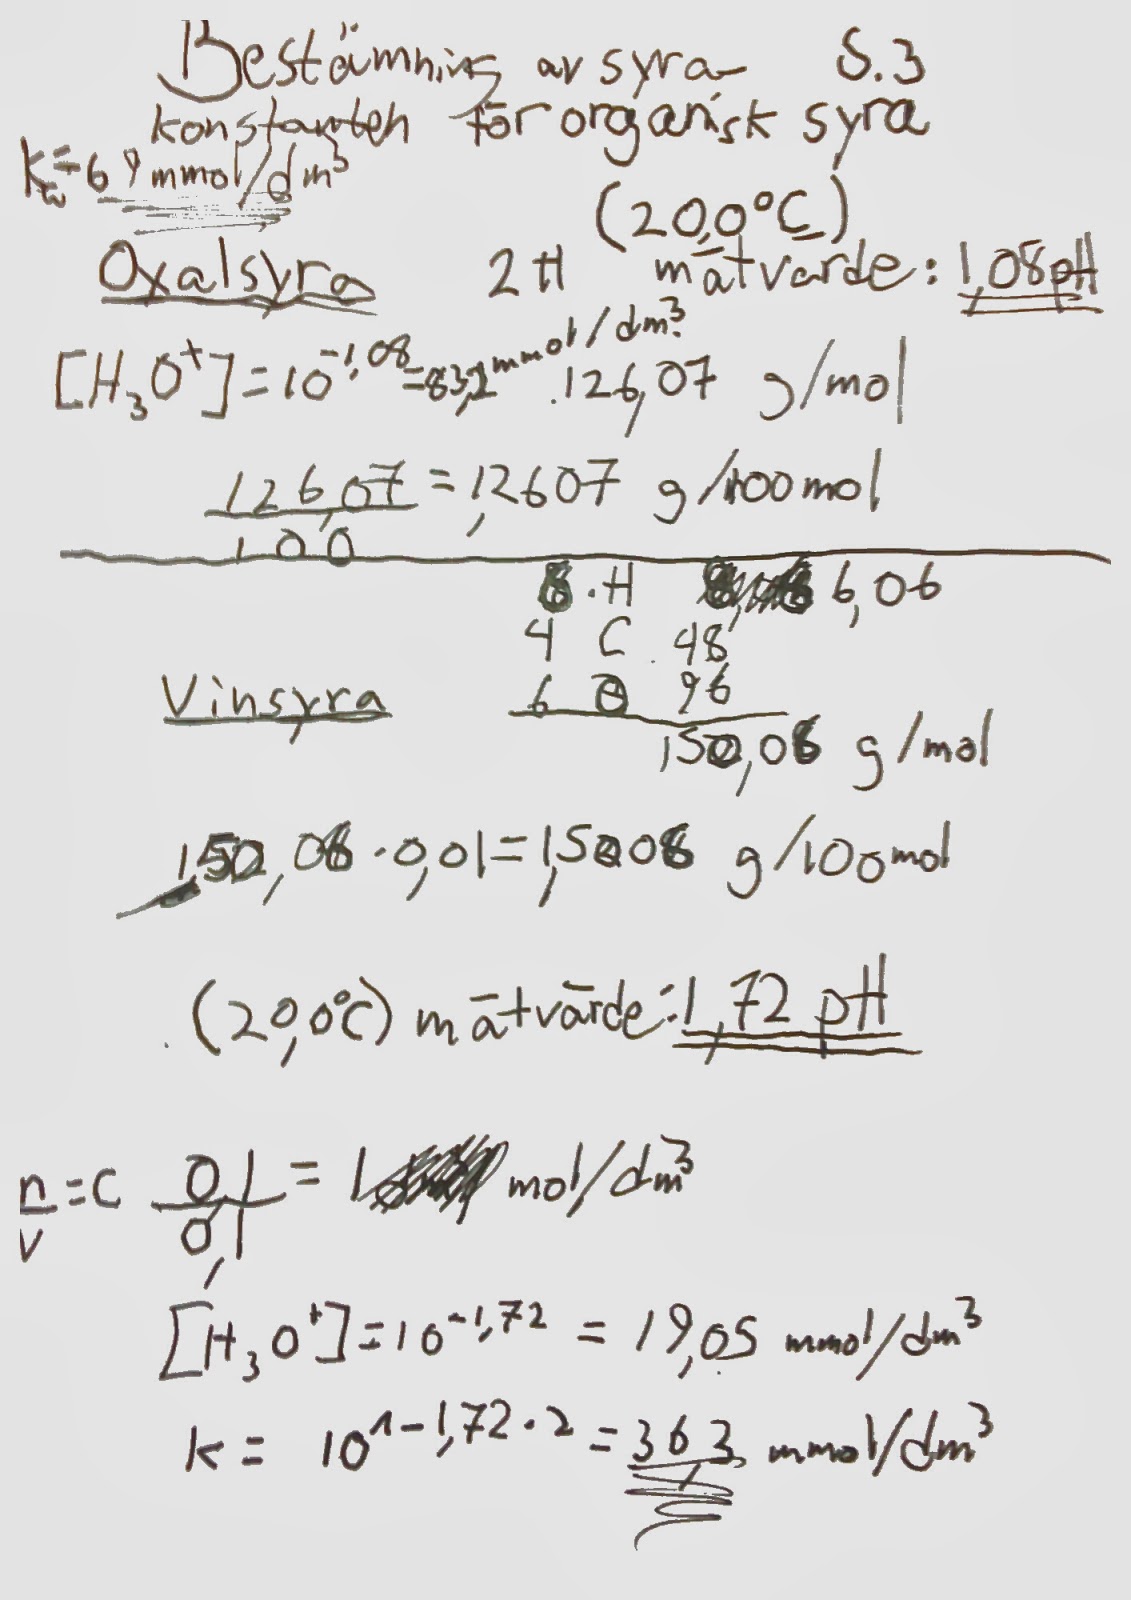 Bestämning av syra- S.3
konstanten för organisk syra
k = 69 mmol/dm³
(20,0°C)
Oxalsyra 2H mätvärde: 1,08 pH
[H₃O⁺] = 10^-1,08 = 83,2 mmol/dm³ 126,07 g/mol
126,07/100 = 1,2607 g/100mol
8 · H 6,06
4 C 48
Vinsyra 6 O 96
150,08 g/mol
150,08 · 0,01 = 1,5008 g/100mol
(20,0°C) mätvärde: 1,72 pH
n/v = c 0,1/0,1 = 1 mol/dm³
[H₃O⁺] = 10^-1,72 = 19,05 mmol/dm³
k = 10^1-1,72·2 = 3,63 mmol/dm³